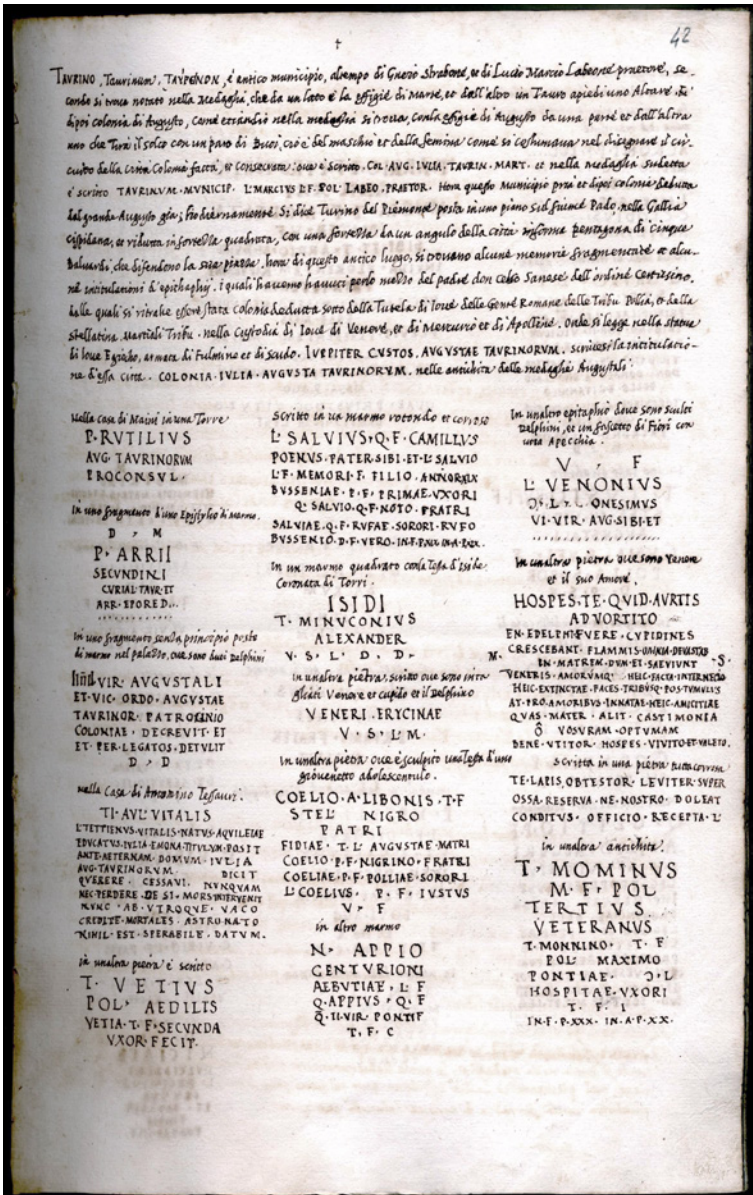 42
TAURINO, Taurinum, ΤΑΥΡΕΝΟΝ, è antico municipio, al tempo di Gneio Strabone, et di Lucio Marcio Labeone praetore, se-
condo si trova notato nella Medaglia, che da un lato è la effigie di Marte, et dall'altro un Tauro apiedi uno Altare. Fu
dipoi colonia di Augusto, come etiandio nella medaglia si trova, con la effigie di Augusto da una parte et dall'altra
uno che Tira il solco con un paro di Buoi, cio è del maschio et della femina come si costumava nel disegnare il cir-
cuito della città Colonia fatta, et consecrata: ove è scritto. COL. AUG. IULIA. TAURIN. MART. et nella medaglia sudetta
è scritto TAURINVM. MVNICIP. L. MARCIVS L. F. POL. LABEO. PRAETOR. Hora questo Municipio pria et dipoi colonia deduta
dal grande Augusto già; hodiernamente si dice Turino del Piemonte posta in uno piano sul fiume Pado, nella Gallia
cispidana, et ridutta in fortezza quadrata, con una fortezza da un angulo della città in forma pentagona di cinque
Baluardi, che difendono la sua piazza. hora di questo antico luogo, si trovano alcune memorie fragmentate et alcu-
ne intitulationi d'epithaphij. i quali havemo havuti per lo mezzo del padre don Celso Sanese dell'ordine Certosino.
dalle quali si ritrahe essere stata Colonia deducta sotto della Tutela di Iove delle Gente Romane delle Tribu Pollia, et della
Stellatina, Martiali Tribu. nella Custodia di Iove di Venere, et di Mercurio et di Apolline. Onde si legge nella statua
di Iove Egioho, armata di fulmine et di scudo. IVPPITER CVSTOS. AVGVSTAE TAVRINORVM. scrivesi la intitulatio-
ne d'essa citta. COLONIA. IVLIA. AVGVSTA TAVRINORVM. nelle antichita delle medaglie Augustali.
Nella Casa di Maini in una Torre
P. RVTILIVS
AVG TAVRINORVM
PROCONSVL.
In uno fragmento d'uno Epistylio di Marmo.
D , M
P. ARRII
SECVNDINI
CVRIAL TAVR ET
ARR. EPORED..
In uno fragmento senza principio posto
di marmo nel palazzo, ove sono duoi Delphini
IIIIII VIR AVGVSTALI
ET VIC ORDO AVGVSTAE
TAVRINOR PATROCINIO
COLONIAE DECREVIT ET
ET PER LEGATOS DETVLIT
D , D
nella Casa di Antonino Tessauri.
TI AVL VITALIS
L TETTIENVS VITALIS NATVS AQVILEIAE
EDVCATVS IVLIA EMONA TITVLVM POSIT
ANTE AETERNAM DOMVM IVLIA
AVG TAVRINORVM DICIT
QVERERE CESSAVI NVNQVAM
NEC PERDERE DE SI MORS INTERVENIT
NVNC AB VTROQVE VACO
CREDITE MORTALES ASTRO NATO
NIHIL EST SPERABILE DATVM.
in unaltra pietra è scritto
T. VETIVS
POL, AEDILIS
VETIA. T. F. SECVNDA
VXOR. FECIT.
Scritto in un marmo rotondo et corroso
L. SALVIVS. Q. F. CAMILLVS
POENVS. PATER SIBI ET L. SALVIO
L. F. MEMORI F. FILIO ANNOR XIX
BVSSENIAE P. F. PRIMAE VXORI
Q. SALVIO. Q. F. NOTO FRATRI
SALVIAE. Q. F. RVFAE SORORI RVFO
BVSSENIO
In un marmo quadrato con la Testa d'Iside
Coronata di Torri.
ISIDI
T. MINVCONIVS
ALEXANDER
V. S. L. D. D. M.
in unaltra pietra, scritto ove sono
Venere et cupido et il Delphino
VENERI ERYCINAE
V. S. L. M.
In unaltra pietra ove è sculpito una Testa d'uno
giovenetto adolescentulo.
COELIO. A. LIBONIS. T. F
STEL NIGRO
PATRI
FIDIAE. T. L. AVGVSTAE MATRI
COELIO. P. F. NIGRINO FRATRI
COELIAE. P. F. POLLIAE SORORI
L. COELIVS. P. F. IVSTVS
V. F
in altro marmo
N. APPIO
CENTVRIONI
ALBVTIAE. L. F
Q. APPIVS. Q. F
Q. II VIR PONTIF
T. F. C
In unaltro epitaphio dove sono sculti
Delphini, et un fascetto di Fiori con
una Apecchia.
V , F
L. VENONIVS
Ɔ. L. ONESIMVS
VI. VIR. AVG. SIBI ET
in unaltra pietra ove sono Venere
et il suo Amore.
HOSPES. TE. QVID. AVRTIS
ADVORTITO
EN EDELPHI FVERE CVPIDINES
CRESCEBANT FLAMMIS OMNIA DEVASTAB
IN MATREM DVM ET SAEVIVNT S.
VENERIS AMORVMQ HEIC FACTA INTERNECIO
HEIC EXTINCTAE FACES TRIBVSQ POS TVMVLVS
AT PRO AMORIBVS INNATAE HEIC AMICITIAE
QVAS MATER ALIT CASTIMONIA
Ô VOSVRAM OPTVMAM
BENE VTITOR HOSPES VIVITO ET VALETO.
Scritta in una pietra tutta corrosa
TE. LAPIS, OBTESTOR LEVITER SVPER
OSSA. RESERVA. NE. NOSTRO DOLEAT
CONDITVS. OFFICIO. RECEPTA. L
in unaltra antichità.
T. MOMINVS
M. F. POL
TERTIVS
VETERANVS
T. MONNINO. T. F
POL MAXIMO
PONTIAE. Ɔ. L
HOSPITAE VXORI
T. F. I
IN. F. P. XXX. IN. A. P. XX.